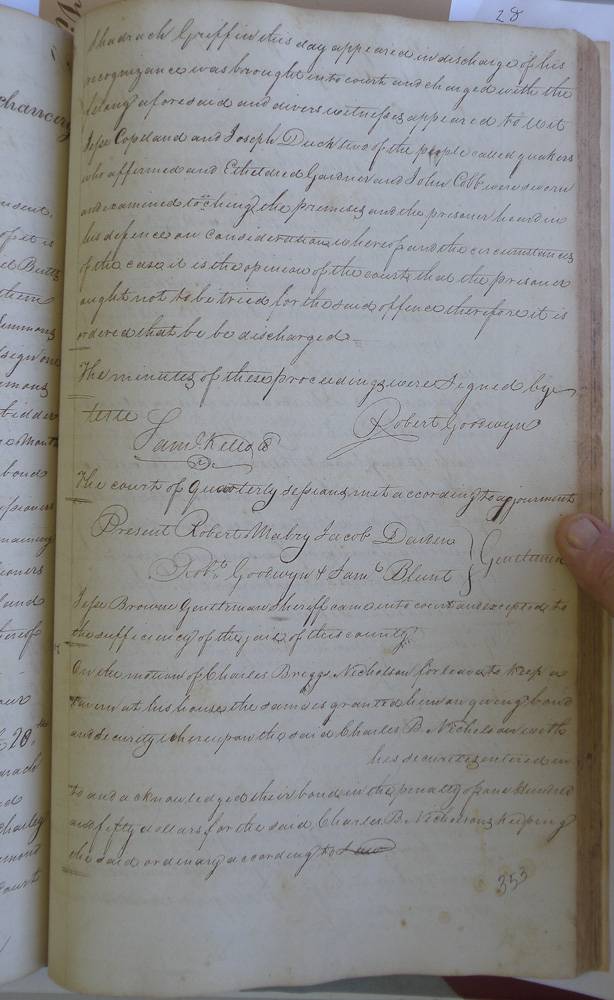 28
Shadrach Griffin this day appeared in discharge of his
recognizance was brought into court and charged with the
felony aforesaid and divers witnesses appeared to wit
Jesse Copeland and Joseph Duck two of the people called quakers
who affirmed and Etheldred Gardner and John Cobb were sworn
and examined touching the premises and the prisoner heard in
his defence on consideration whereof and the circumstances
of the case it is the opinion of the court that the prisoner
ought not to be tried for the said offence therefore it is
ordered that he be discharged
The minutes of these proceedings were signed by
Teste
Saml Kello
Robert Goodwyn
The court of quarterly sessions met according to adjournment
Present Robert Mabry Jacob Darden
Robt Goodwyn & Saml Blunt
Gentlemen
Jesse Browne Gentleman Sheriff came into court and excepted to
the sufficiency of the jail of this county
On the motion of Charles Briggs Nicholson for leave to keep a
tavern at his house the same is granted him on giving bond
and security whereupon the said Charles B. Nicholson with
his securities entered in
to and acknowledged their bond in the penalty of one hundred
and fifty dollars for the said Charles B. Nicholsons keeping
the said ordinary according to Law
353